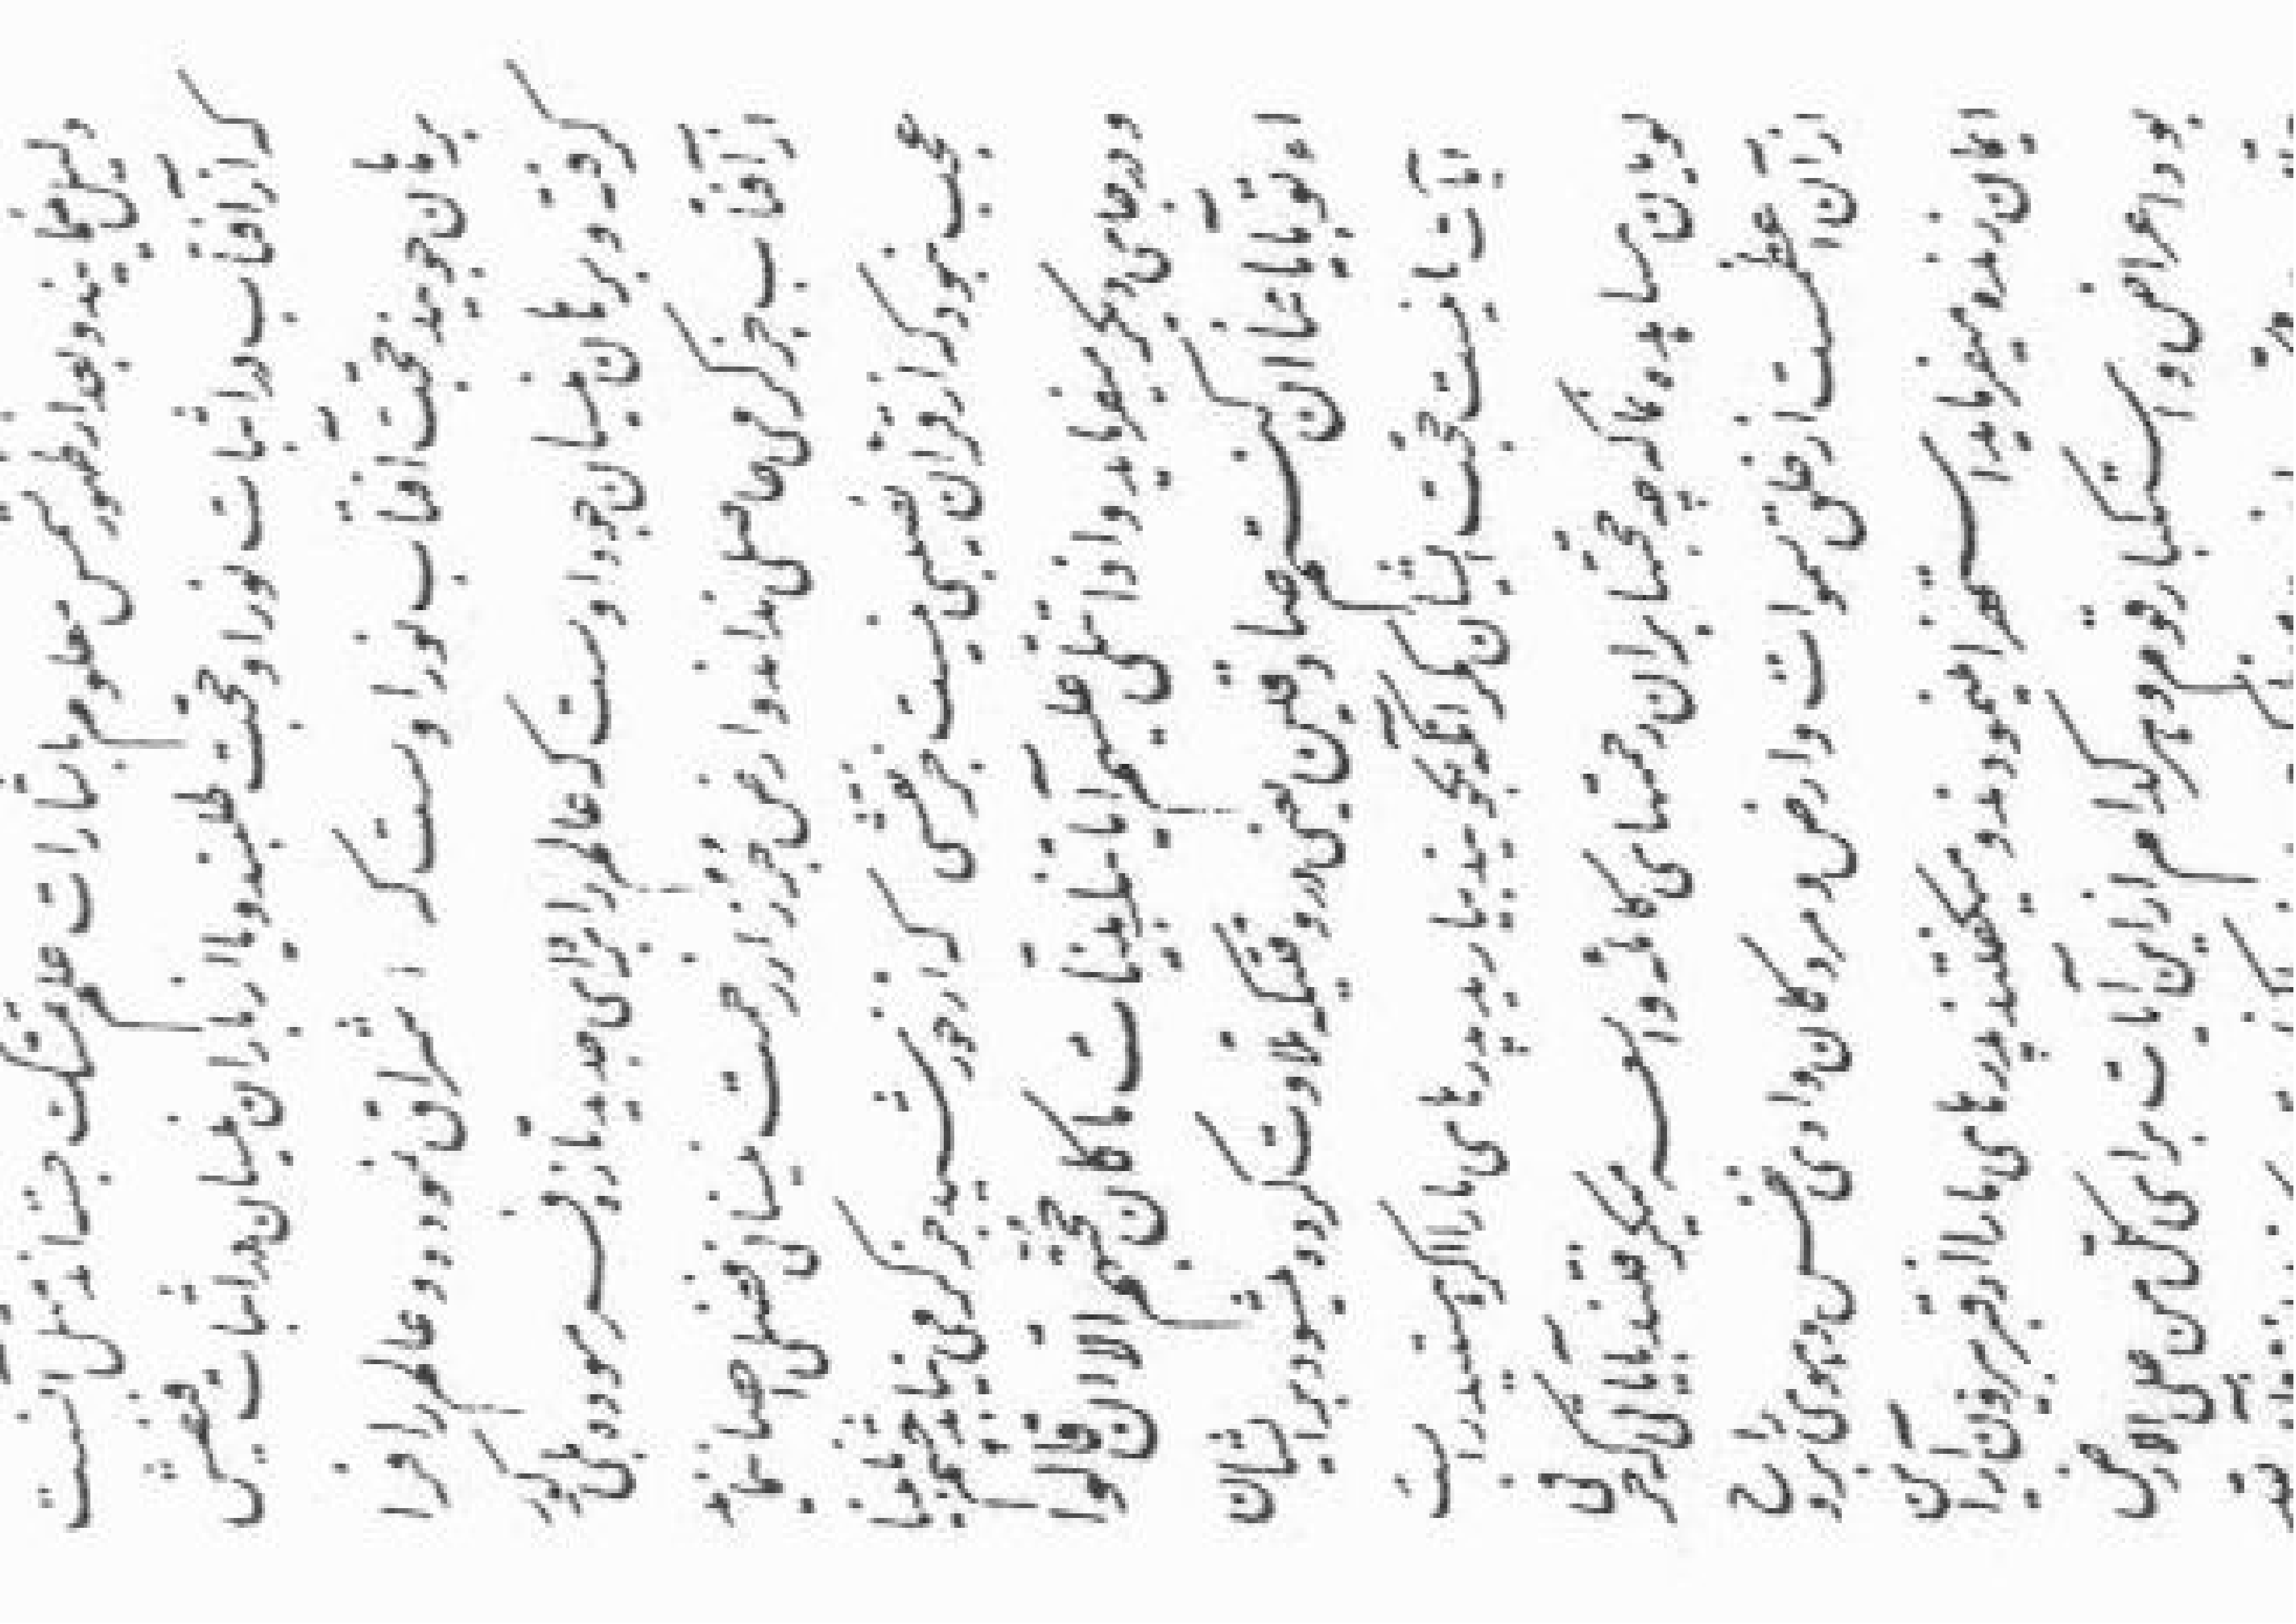 دلیل میجویند و بعد از ظهور شمس معلوم باشارات علم تمسک جسته‌اند مثل انست
که از آفتاب در اثبات نور او حجت طلبند و یا از باران نیسان در اثبات فیضش
برهان جویند حجت آفتاب نور اوست که اشراق نموده و عالم را فرا
گرفته و برهان نیسان جود اوست که عالم را بردای جدید تازه فرموده بلی کور
از آفتاب جز گرمی حاصلی نداند و ارض جرز از رحمت نیسان فضلی احصا نماید
عجب نبود که از قران نصیبی نیست جز نقشی که از خورشید جز گرمی نیابد چشم نابینا
و در جای دیگر میفرماید و اذا تتلی علیهم آیاتنا بینات ما کان حجتهم الا ان قالوا
ائتوا بآبائنا ان کنتم صادقین یعنی در وقتیکه تلاوت کرده میشود بر ایشان
آیات ما نیست حجت ایشان مگر آنکه گویند بیارید پدرهای ما را اگر هستید راست
گویان مشاهده که چه حجتها بر ان رحمتهای کامله واسعه میگرفتند بآیاتی که حرفی
از آن اعظم است از خلق سموات و ارض و مرده‌گان وادی نفس و هوی را بروح
ایمان زنده میفرماید استهزا مینمودند و میگفتند پدرهای ما را از قبر بیرون آر این
بود اعراض و استکبار قوم و هر کدام از این آیات برای کل من علی الارض